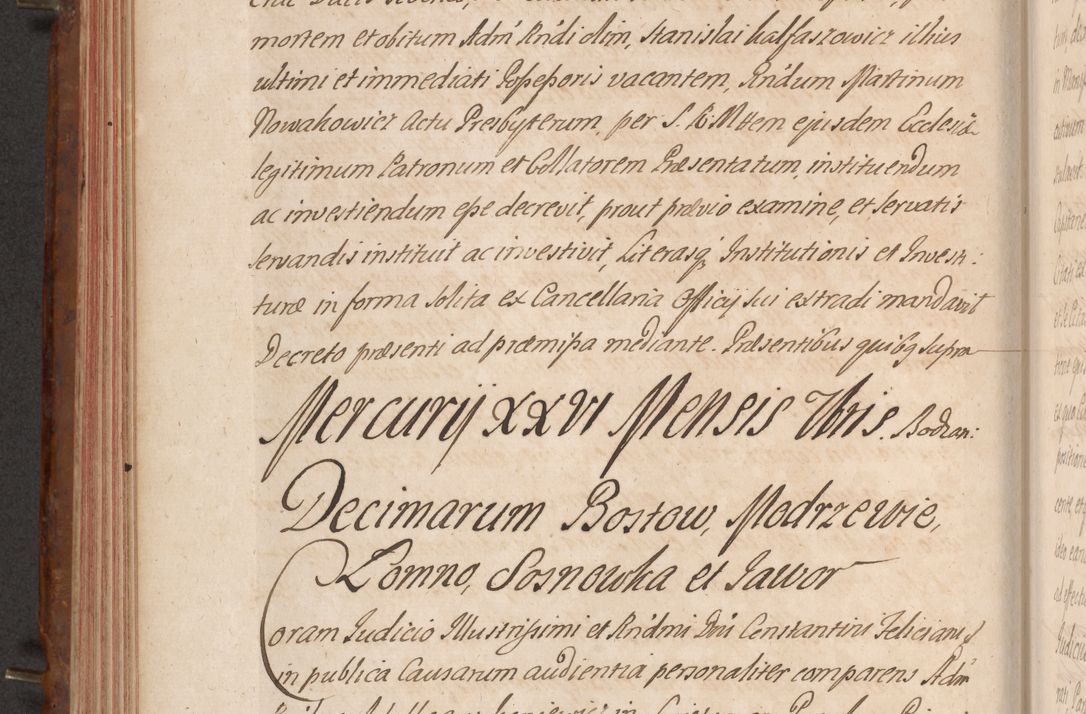 mortem et obitum Adm Rndi olim, Stanislai halfaszowicz illius
ultimi et immediati Possessoris vacantem, Rndum Martinum
Nowakowicz Actu Presbyterum, per S. R. Mttem ejusdem Ecclesiæ
legitimum Patronum et Collatorem Præsentatum, instituendum
ac investiendum esse decrevit, prout prævio examine, et servatis
servandis instituit ac investivit, Literasq Institutionis et Investi:
turæ in forma solita ex Cancellaria Officij sui extradi mandavit
Decreto præsenti ad præmissa mediante. Præsentibus quibq supra
Mercurij XXVI Mensis 7bris. Bodzan:
Decimarum Bostow, Modrzewie,
Łomno, Sosnowka et Jawor
Coram Judicio Illustrissimi et Rndmi Dni Constantini Feliciani S
in publica Causarum audientia personaliter comparens Adm